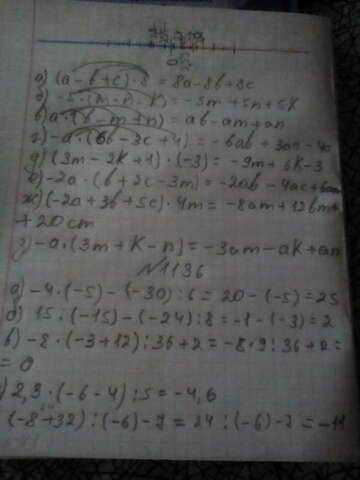 а) (a-b+c)·8 = 8a-8b+8c
б) -5·(m-n-k) = -5m+5n+5k
в) a·(b-m+n) = ab-am+an
г) -a·(6b-3c+4) = -6ab+3ac-4a
д) (3m-2k+1)·(-3) = -9m+6k-3
е) -2a·(b+2c-3m) = -2ab-4ac+6am
ж) (-2a+3b+5c)·4m = -8am+12bm+
+20cm
з) -a·(3m+k-n) = -3am-ak+an
№1136
а) -4·(-5)-(-30):6 = 20-(-5) = 25
б) 15:(-15)-(-24):8 = -1-(-3) = 2
в) -8·(-3+12):36+2 = -8·9:36+2=
= 0
) 2,3·(-6-4):5 = -4,6
(-8+32):(-6)-7 = 24:(-6)-7 = -11